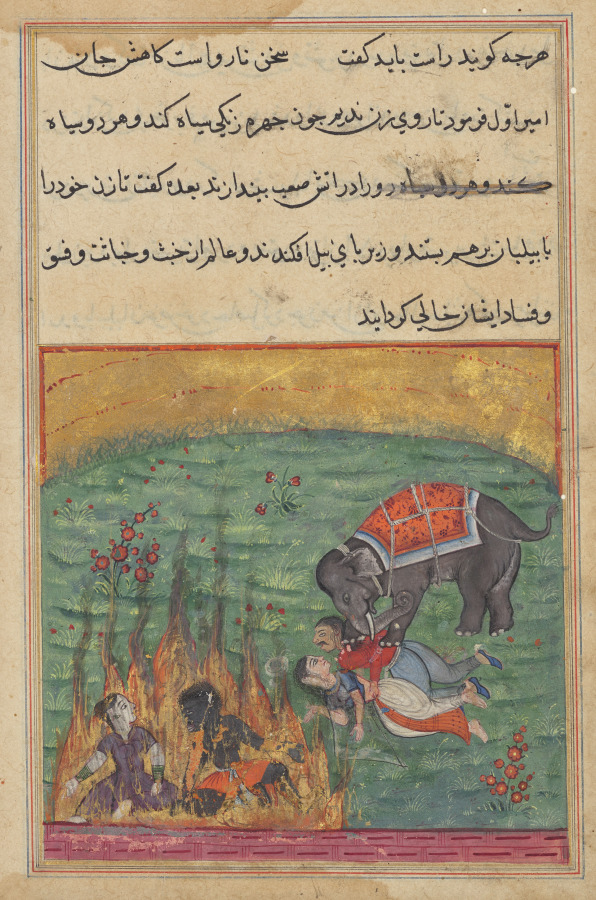 هرچه کویند راست باید کفت سخن ناراست کاهش جان
امیر اول فرمود تا روی زن ندیم چون چهره زنکی سیاه کند و هر دو سیاه
کند و هر دو سیاه رو را در اتش صعب بیندازند بعده کفت تا زن خود را
با پیلبان بر هم بستند و زیر پای پیل افکندند و عالم از خبث و خباثت و فسق
و فساد ایشان خالی کردایند